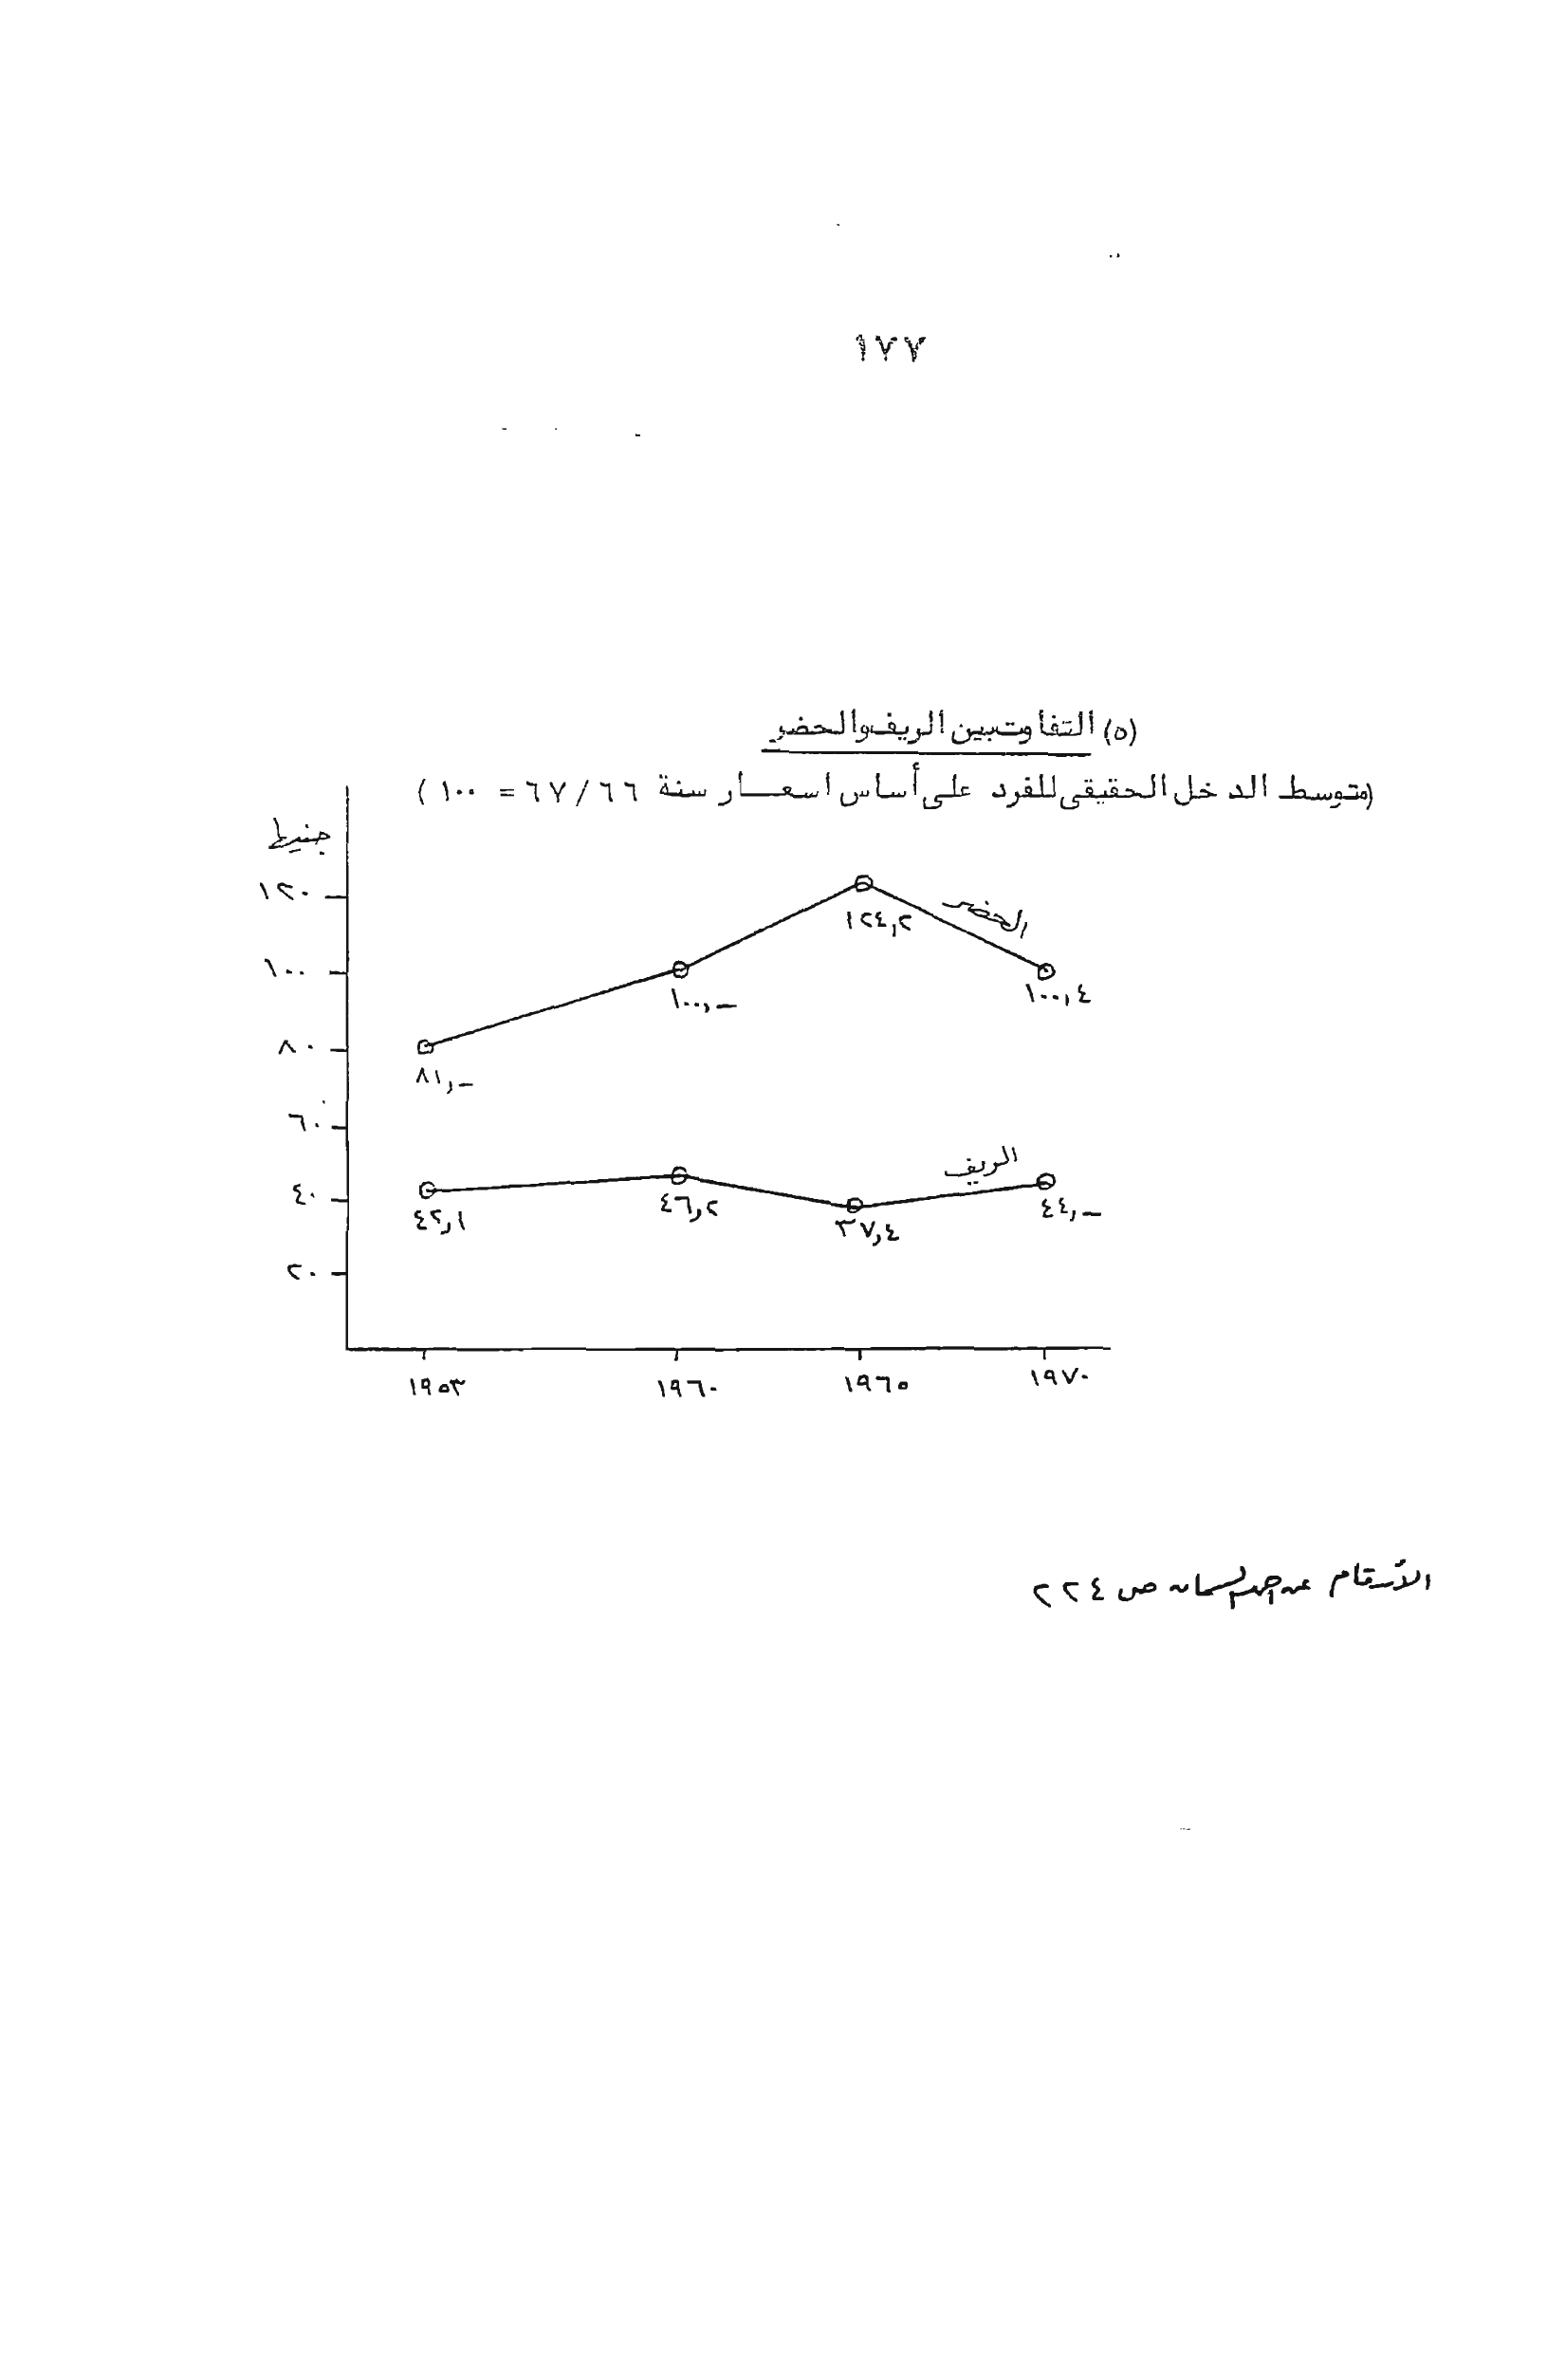 ١٧٧
(٥) التفاوت بين الريف والحضر
(متوسط الدخل الحقيقى للفرد على أساس اسعار سنة ٦٧/٦٦ = ١٠٠)
جنيها
١٢٠
١٠٠
٨٠
٦٠
٤٠
٢٠
الحضر
٨١,–
١٠٠,–
١٢٤,٢
١٠٠,٤
الريف
٤٢,١
٤٦,٢
٣٧,٤
٤٤,–
١٩٥٣ ١٩٦٠ ١٩٦٥ ١٩٧٠
الأرقام عن ص ٢٢٤